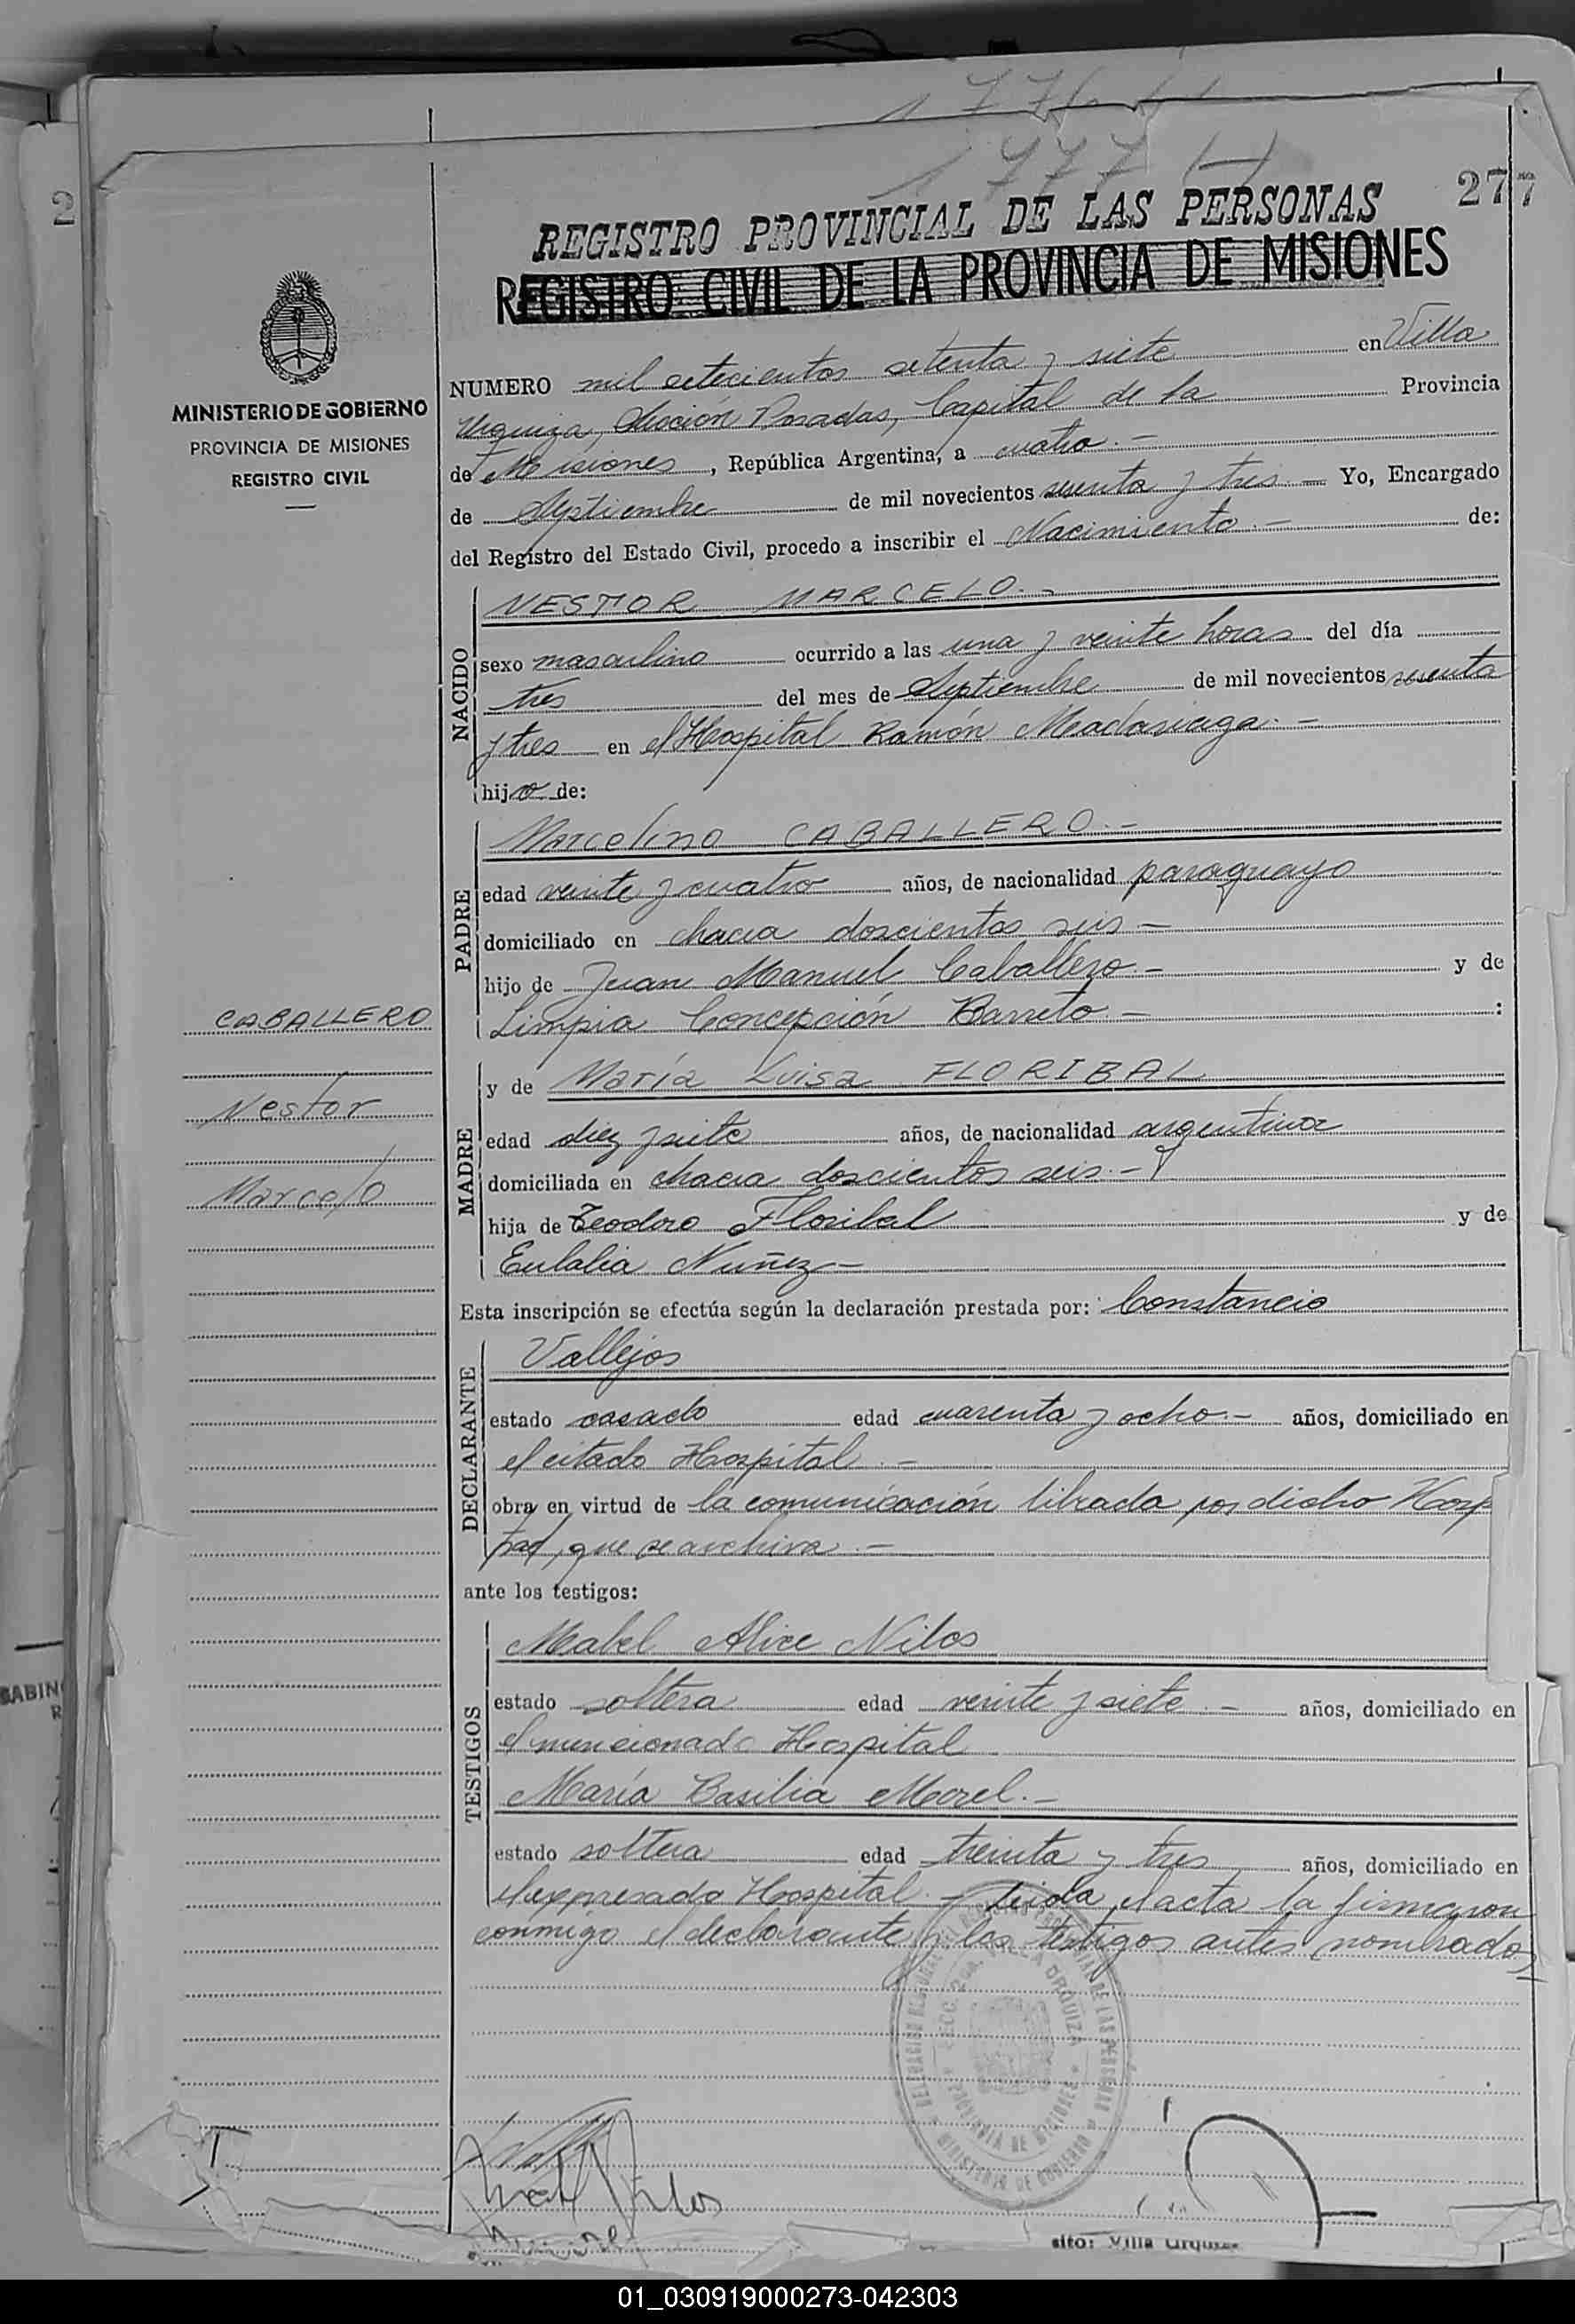 1777 (-)
277
2
REGISTRO PROVINCIAL DE LAS PERSONAS
REGISTRO CIVIL DE LA PROVINCIA DE MISIONES
MINISTERIO DE GOBIERNO
PROVINCIA DE MISIONES
REGISTRO CIVIL
NUMERO mil setecientos setenta y siete en Villa
Urquiza, Sección Posadas, Capital de la Provincia
de Misiones, República Argentina, a cuatro.-
de Septiembre de mil novecientos sesenta y tres.- Yo, Encargado
del Registro del Estado Civil, procedo a inscribir el Nacimiento.- de:
NACIDO
NESTOR MARCELO.-
sexo masculino ocurrido a las una y veinte horas del día
tres del mes de Septiembre de mil novecientos sesenta
y tres en el Hospital Ramón Madariaga.-
hijo de:
PADRE
Marcelino CABALLERO.-
edad veinte y cuatro años, de nacionalidad paraguayo
domiciliado en chacra doscientos seis.-
hijo de Juan Manuel Caballero.- y de
Limpia Concepción Barreto.- :
CABALLERO
Nestor
Marcelo
MADRE
y de María Luisa FLORIBAL
edad diez y siete años, de nacionalidad argentina
domiciliada en chacra doscientos seis.-
hija de Teodoro Floribal y de
Eulalia Nuñez.-
Esta inscripción se efectúa según la declaración prestada por: Constancio
DECLARANTE
Vallejos
estado casado edad cuarenta y ocho.- años, domiciliado en
el citado Hospital.-
obra en virtud de la comunicación librada por dicho Hosp
tal, que se archiva.-
ante los testigos:
TESTIGOS
Mabel Alice Nilos
estado soltera edad veinte y siete.- años, domiciliado en
el mencionado Hospital
María Basilia Morel.-
estado soltera edad treinta y tres años, domiciliado en
el expresado Hospital.- Leida el acta la firmaron
conmigo el declarante y los testigos antes nombrados
VILLA URQUIZA
PROVINCIA DE MISIONES
MINISTERIO DE GOBIERNO
sito: Villa Urquiza
01_030919000273-042303